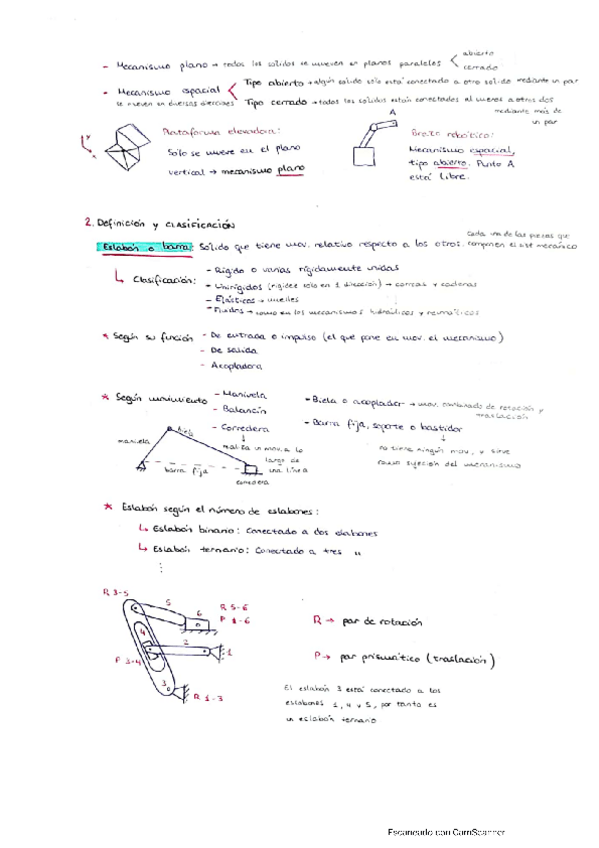 abierto
- Mecanismo plano → todos los sólidos se mueven en planos paralelos < cerrado
Tipo abierto → algún sólido solo está conectado a otro sólido mediante un par
- Mecanismo espacial <
se mueven en diversas direcciones Tipo cerrado → todos los sólidos están conectados al menos a otros dos
mediante más de
un par
A
Plataforma elevadora:
Solo se mueve en el plano
vertical → mecanismo plano
Brazo robótico:
Mecanismo espacial,
tipo abierto. Punto A
está libre.
2. Definición y CLASIFICACIÓN
Cada una de las piezas que
Eslabón o barra: Sólido que tiene mov. relativo respecto a los otros. componen el
Clasificación:
- Rígido o varias rígidamente unidas
- Unirígidos (rigidez solo en 1 dirección) → correas y cadenas
- Elásticos → muelles
- Fluidos → como en los mecanismos hidráulicos y neumáticos
* Según su función - De entrada o impulso (el que pone en mov. el mecanismo)
- De salida
- Acopladora
* Según movimiento - Manivela
- Balancín
- Corredera
↓
realiza un mov. a lo
largo de
una línea
- Biela o acoplador → mov. combinado de rotación y
traslación
- Barra fija, soporte o bastidor
↓
no tiene ningún mov. y sirve
como sujeción del mecanismo
manivela
biela
barra fija
corredera
* Eslabón según el número de eslabones:
↳ Eslabón binario: Conectado a dos eslabones
↳ Eslabón ternario: Conectado a tres "
⋮
R 3-5
5
6
R 5-6
P 1-6
4
2
1
P 3-4
3
R 1-3
R → par de rotación
P → par prismático (traslación)
El eslabón 3 está conectado a los
eslabones 1, 4 y 5, por tanto es
un eslabón ternario
Escaneado con CamScanner